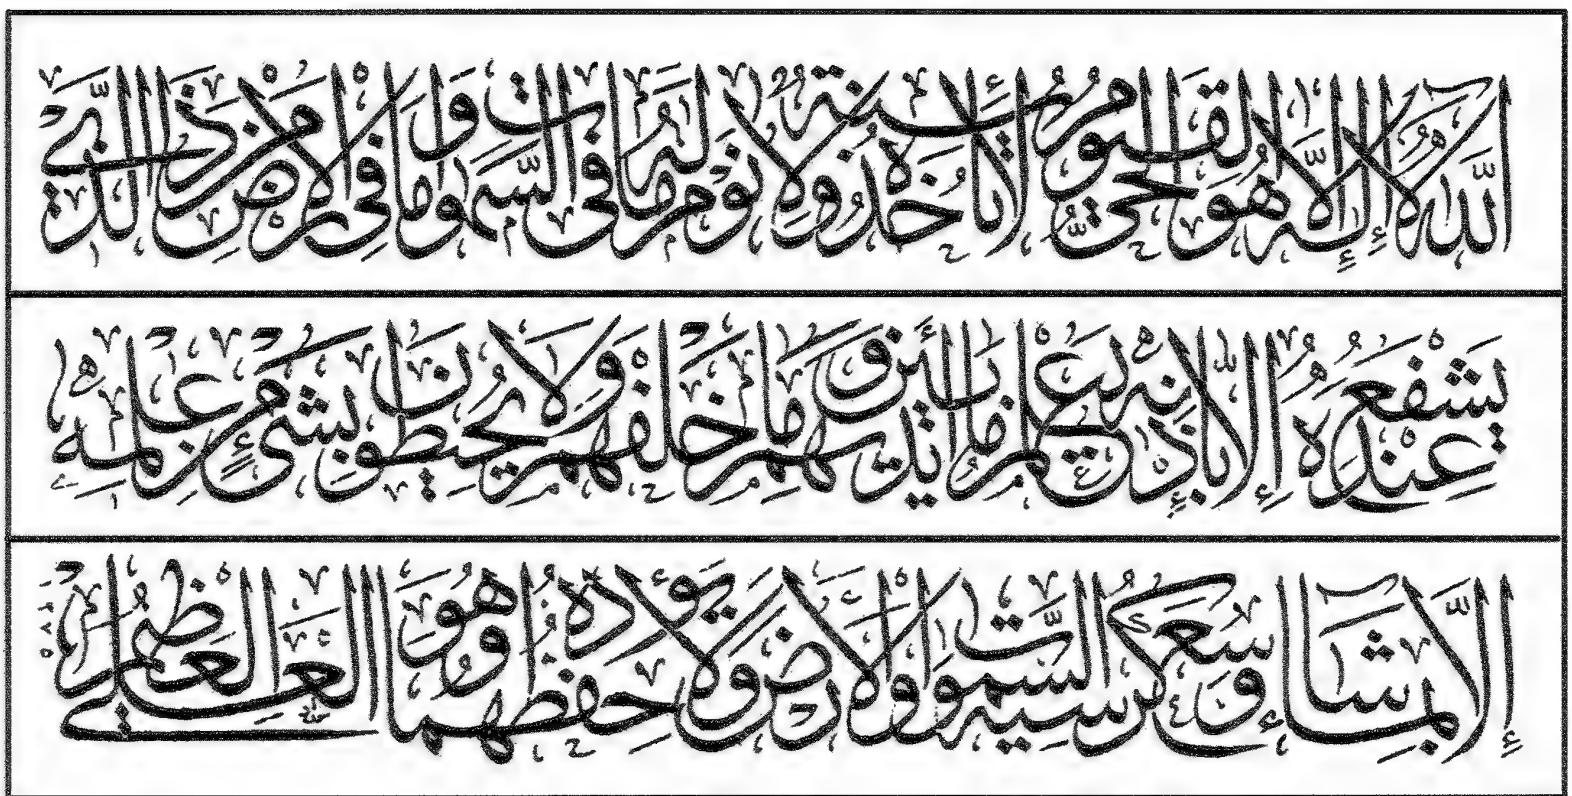 الله لا إله إلا هو الحي القيوم لا تأخذه سنة ولا نوم له ما في السموات وما في الأرض من ذا الذي
يشفع عنده إلا بإذنه يعلم ما بين أيديهم وما خلفهم ولا يحيطون بشيء من علمه
إلا بما شاء وسع كرسيه السموات والأرض ولا يؤده حفظهما وهو العلي العظيم